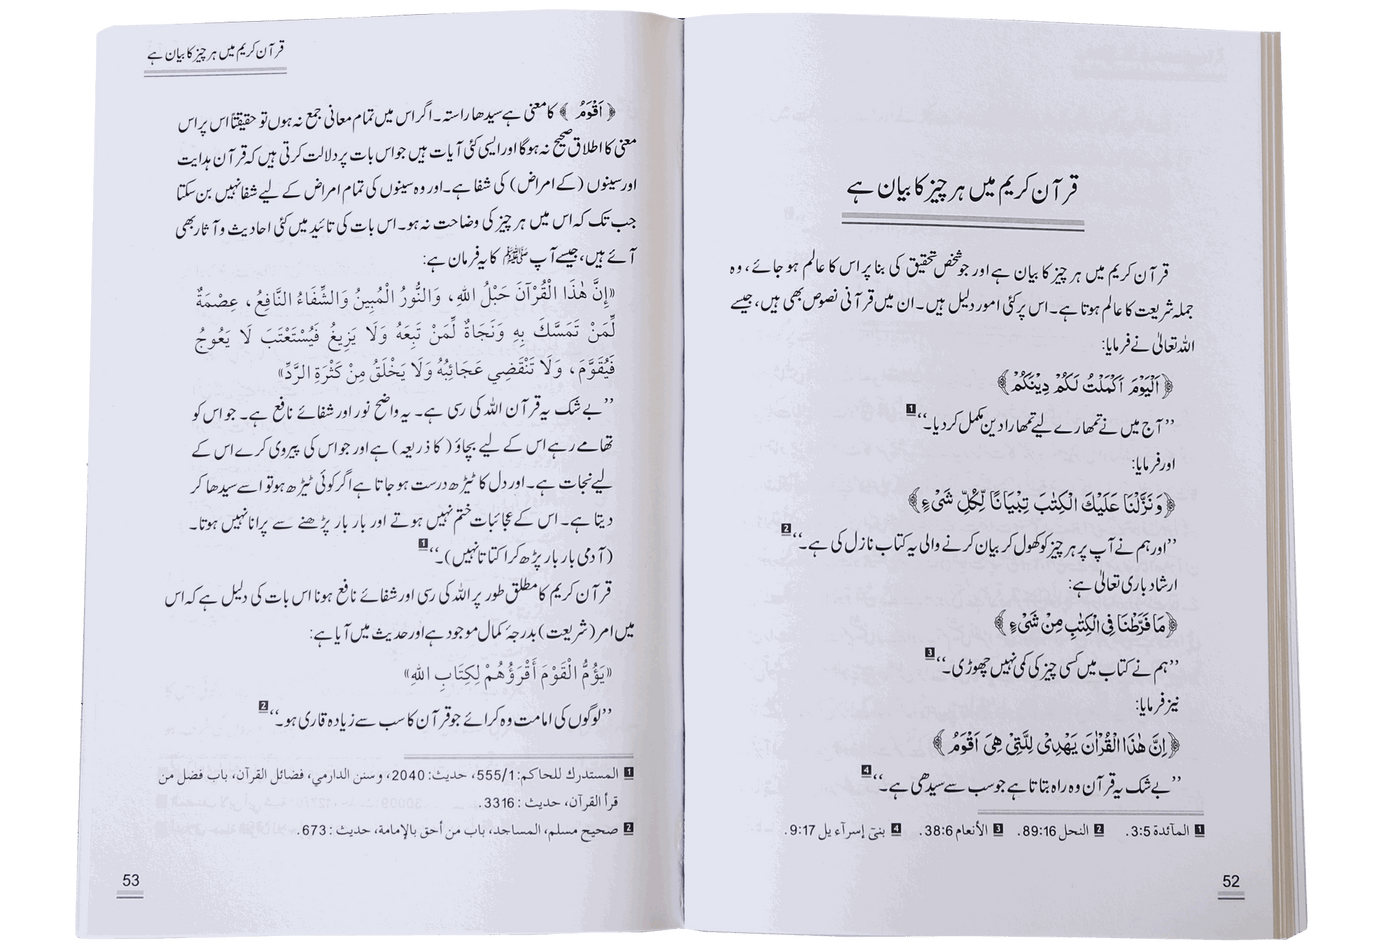 قرآن کریم میں ہر چیز کا بیان ہے
قرآن کریم میں ہر چیز کا بیان ہے اور جو شخص تحقیق کی بنا پر اس کا عالم ہو جائے، وہ
جملہ شریعت کا عالم ہوتا ہے۔ اس پر کئی امور دلیل ہیں۔ ان میں قرآنی نصوص بھی ہیں، جیسے
اللہ تعالیٰ نے فرمایا:
﴿اَلْيَوْمَ اَكْمَلْتُ لَكُمْ دِيْنَكُمْ﴾
’’آج میں نے تمھارے لیے تمھارا دین مکمل کر دیا۔‘‘ 1
اور فرمایا:
﴿وَنَزَّلْنَا عَلَيْكَ الْكِتٰبَ تِبْيَانًا لِّكُلِّ شَيْءٍ﴾
’’اور ہم نے آپ پر ہر چیز کو کھول کر بیان کرنے والی یہ کتاب نازل کی ہے۔‘‘ 2
ارشاد باری تعالیٰ ہے:
﴿مَا فَرَّطْنَا فِي الْكِتٰبِ مِنْ شَيْءٍ﴾
’’ہم نے کتاب میں کسی چیز کی کمی نہیں چھوڑی۔‘‘ 3
نیز فرمایا:
﴿اِنَّ هٰذَا الْقُرْاٰنَ يَهْدِيْ لِلَّتِيْ هِيَ اَقْوَمُ﴾
’’بے شک یہ قرآن وہ راہ بتاتا ہے جو سب سے سیدھی ہے۔‘‘ 4
1 المآئدة 3:5. 2 النحل 89:16. 3 الأنعام 38:6. 4 بنیٓ إسرآءيل 9:17.
52
قرآن کریم میں ہر چیز کا بیان ہے
﴿اَقْوَمُ﴾ کا معنی ہے سیدھا راستہ۔ اگر اس میں تمام معانی جمع نہ ہوں تو حقیقتاً اس پر اس
معنی کا اطلاق صحیح نہ ہوگا اور ایسی کئی آیات ہیں جو اس بات پر دلالت کرتی ہیں کہ قرآن ہدایت
اور سینوں (کے امراض) کی شفا ہے۔ اور وہ سینوں کی تمام امراض کے لیے شفا نہیں بن سکتا
جب تک کہ اس میں ہر چیز کی وضاحت نہ ہو۔ اس بات کی تائید میں کئی احادیث و آثار بھی
آئے ہیں، جیسے آپ ﷺ کا یہ فرمان ہے:
«إِنَّ هٰذَا الْقُرْآنَ حَبْلُ اللهِ، وَالنُّورُ الْمُبِينُ وَالشِّفَاءُ النَّافِعُ، عِصْمَةٌ
لِّمَنْ تَمَسَّكَ بِهِ وَنَجَاةٌ لِّمَنْ تَبِعَهُ وَلَا يَزِيغُ فَيُسْتَعْتَبَ لَا يَعُوجُ
فَيُقَوَّمَ، وَلَا تَنْقَضِي عَجَائِبُهُ وَلَا يَخْلَقُ مِنْ كَثْرَةِ الرَّدِّ»
’’بے شک یہ قرآن اللہ کی رسی ہے۔ یہ واضح نور اور شفائے نافع ہے۔ جو اس کو
تھامے رہے اس کے لیے بچاؤ (کا ذریعہ) ہے اور جو اس کی پیروی کرے اس کے
لیے نجات ہے۔ اور دل کا ٹیڑھ درست ہو جاتا ہے اگر کوئی ٹیڑھ ہو تو اسے سیدھا کر
دیتا ہے۔ اس کے عجائبات ختم نہیں ہوتے اور بار بار پڑھنے سے پرانا نہیں ہوتا۔
(آدمی بار بار پڑھ کر اکتاتا نہیں)۔‘‘ 1
قرآن کریم کا مطلق طور پر اللہ کی رسی اور شفائے نافع ہونا اس بات کی دلیل ہے کہ اس
میں امر (شریعت) بدرجۂ کمال موجود ہے اور حدیث میں آیا ہے:
«يَؤُمُّ الْقَوْمَ أَقْرَؤُهُمْ لِكِتَابِ اللهِ»
’’لوگوں کی امامت وہ کرائے جو قرآن کا سب سے زیادہ قاری ہو۔‘‘ 2
1 المستدرك للحاكم: 555/1، حديث: 2040، وسنن الدارمي، فضائل القرآن، باب فضل من
قرأ القرآن، حديث: 3316.
2 صحيح مسلم، المساجد، باب من أحق بالإمامة، حديث: 673.
53